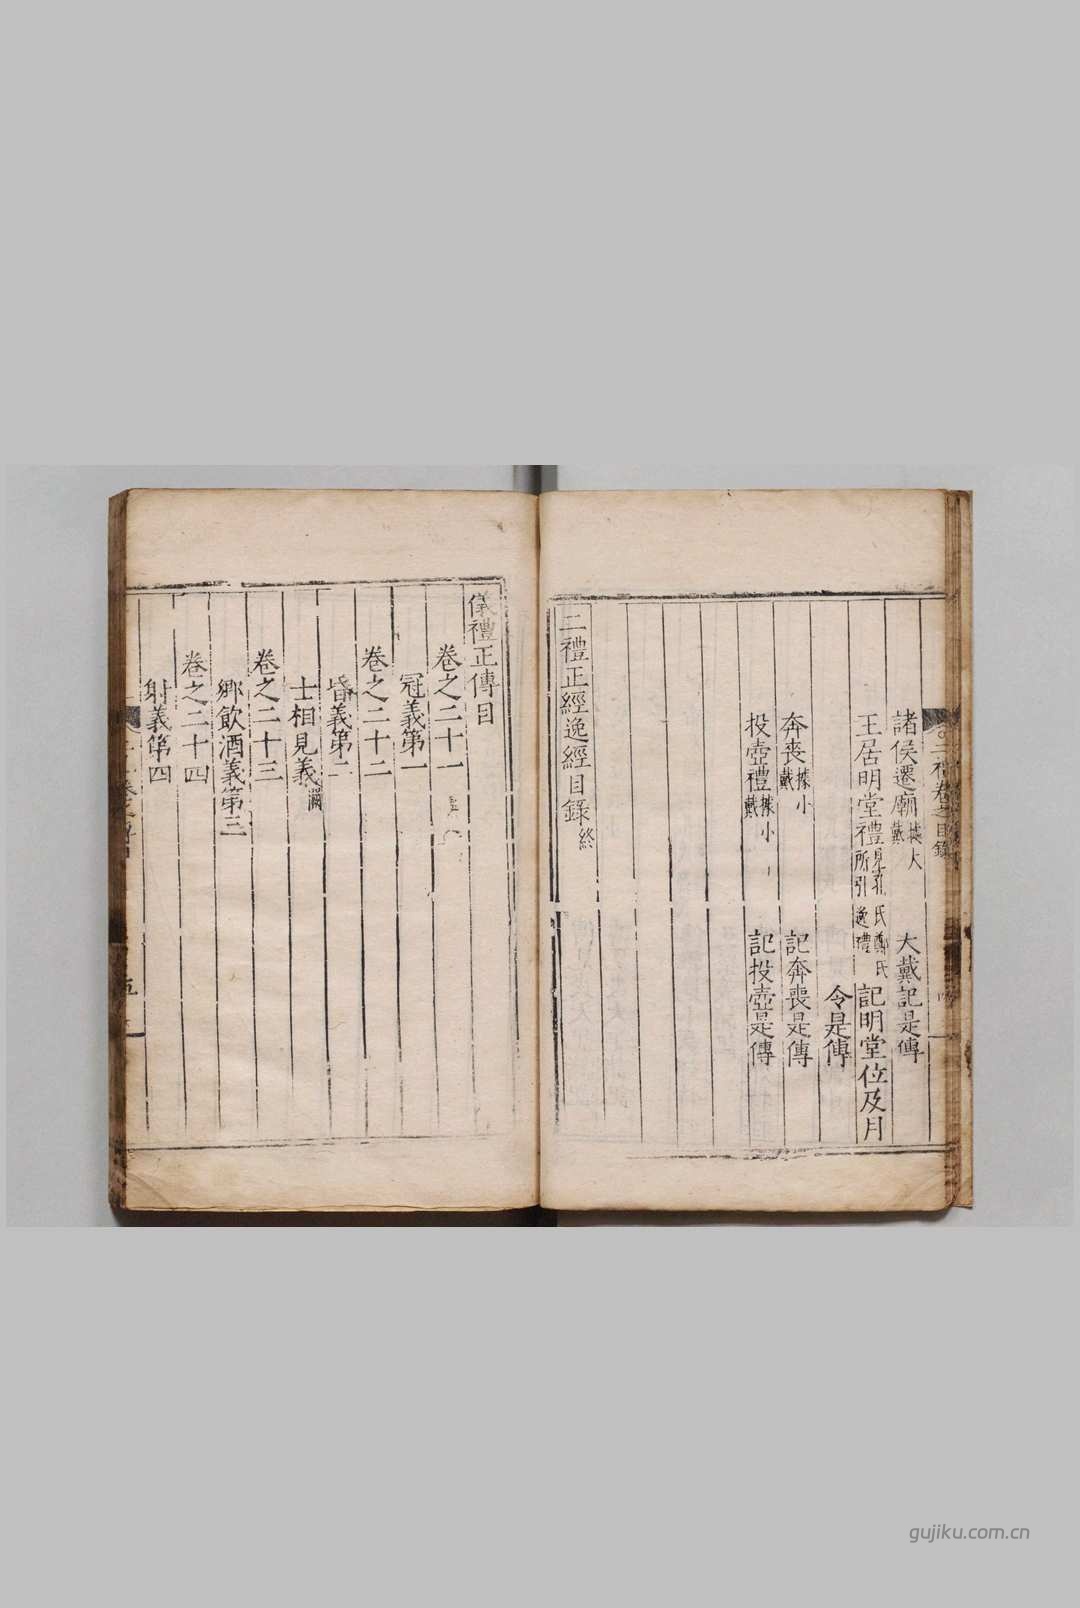 諸侯遷廟據大戴 大戴記是傳
王居明堂禮 所引逸禮 記明堂位及月
令是傳
奔喪據小戴 記奔喪是傳
投壺禮據小戴 記投壺是傳
二禮正經逸經目錄終
儀禮正傳目
卷之二十一
冠義第一
卷之二十二
昏義第二
士相見義
卷之二十三
鄉飲酒義第三
卷之二十四
射義第四
五
gujiku.com.cn